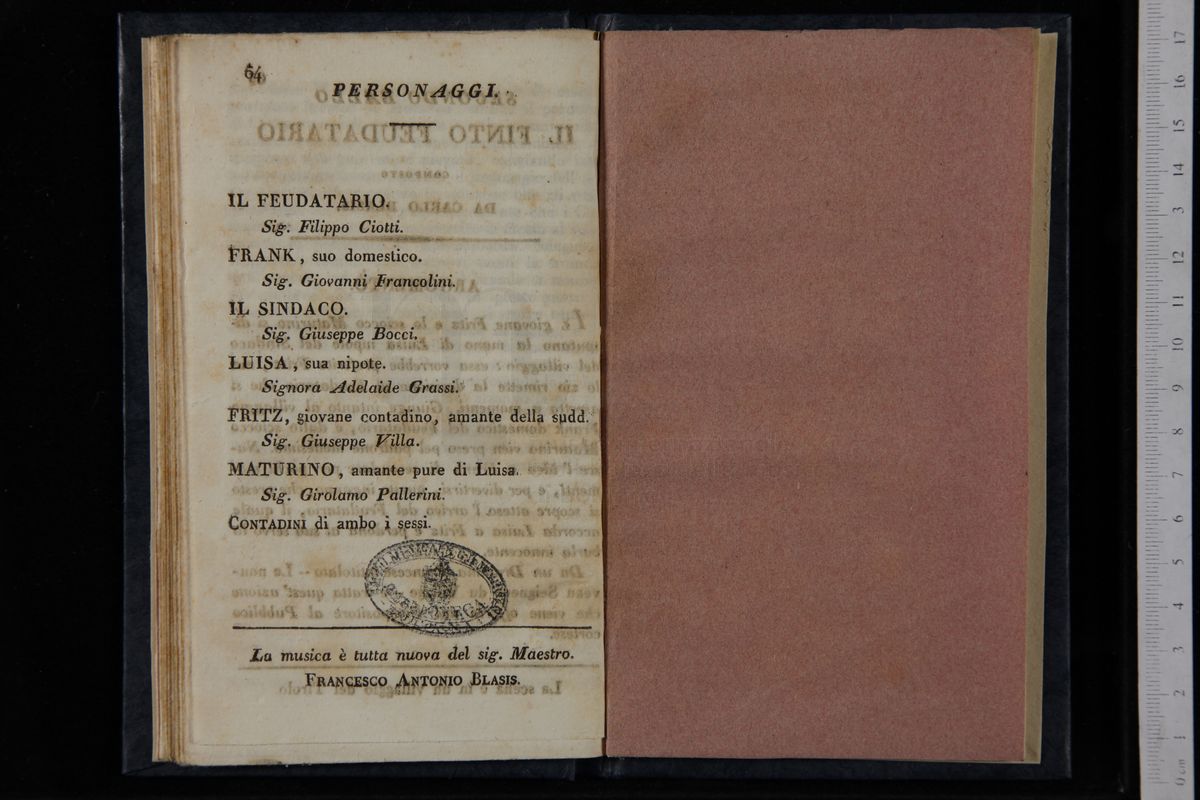 64
PERSONAGGI.
IL FEUDATARIO.
Sig. Filippo Ciotti.
FRANK, suo domestico.
Sig. Giovanni Francolini.
IL SINDACO.
Sig. Giuseppe Bocci.
LUISA, sua nipote.
Signora Adelaide Grassi.
FRITZ, giovane contadino, amante della sudd.
Sig. Giuseppe Villa.
MATURINO, amante pure di Luisa.
Sig. Girolamo Pallerini.
CONTADINI di ambo i sessi.
La musica è tutta nuova del sig. Maestro.
FRANCESCO ANTONIO BLASIS.
0 cm 1 2 3 4 5 6 7 8 9 10 11 12 13 14 15 16 17